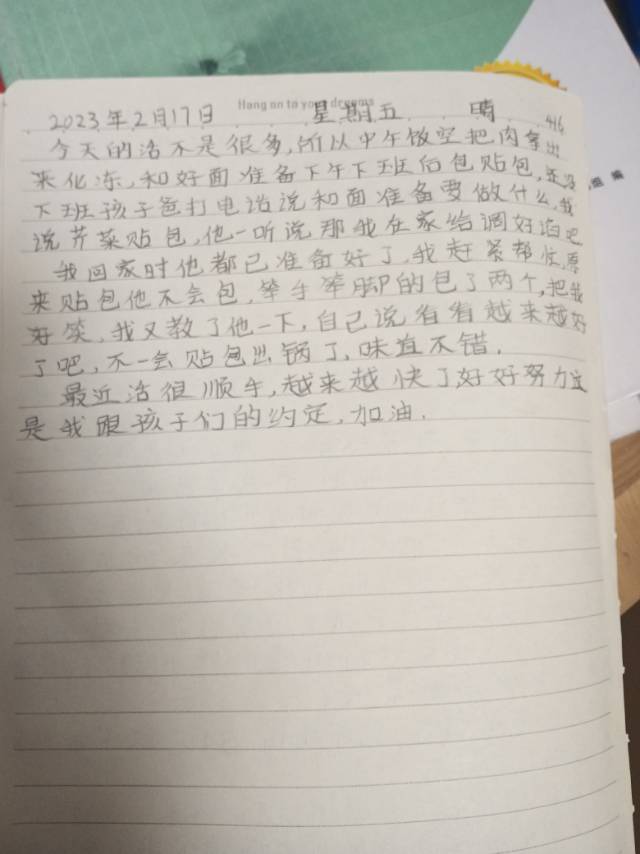 Hang on to your dreams
2023年2月17日 星期五 晴 416
今天的活不是很多,所以中午做空把肉拿出
来化冻,和好面准备下午下班后包贴包,还没
下班孩子爸打电话说和面准备要做什么,我
说芹菜贴包,他一听说那我在家给调好馅吧
我回家时他都已准备好了,我赶紧帮忙,原
来贴包他不会包,笨手笨脚的包了两个,把我
好笑,我又教了他一下,自己说看看越来越好
了吧,不一会贴包出锅了,味道不错.
最近活很顺手,越来越快了好好努力这
是我跟孩子们的约定,加油.
组 编